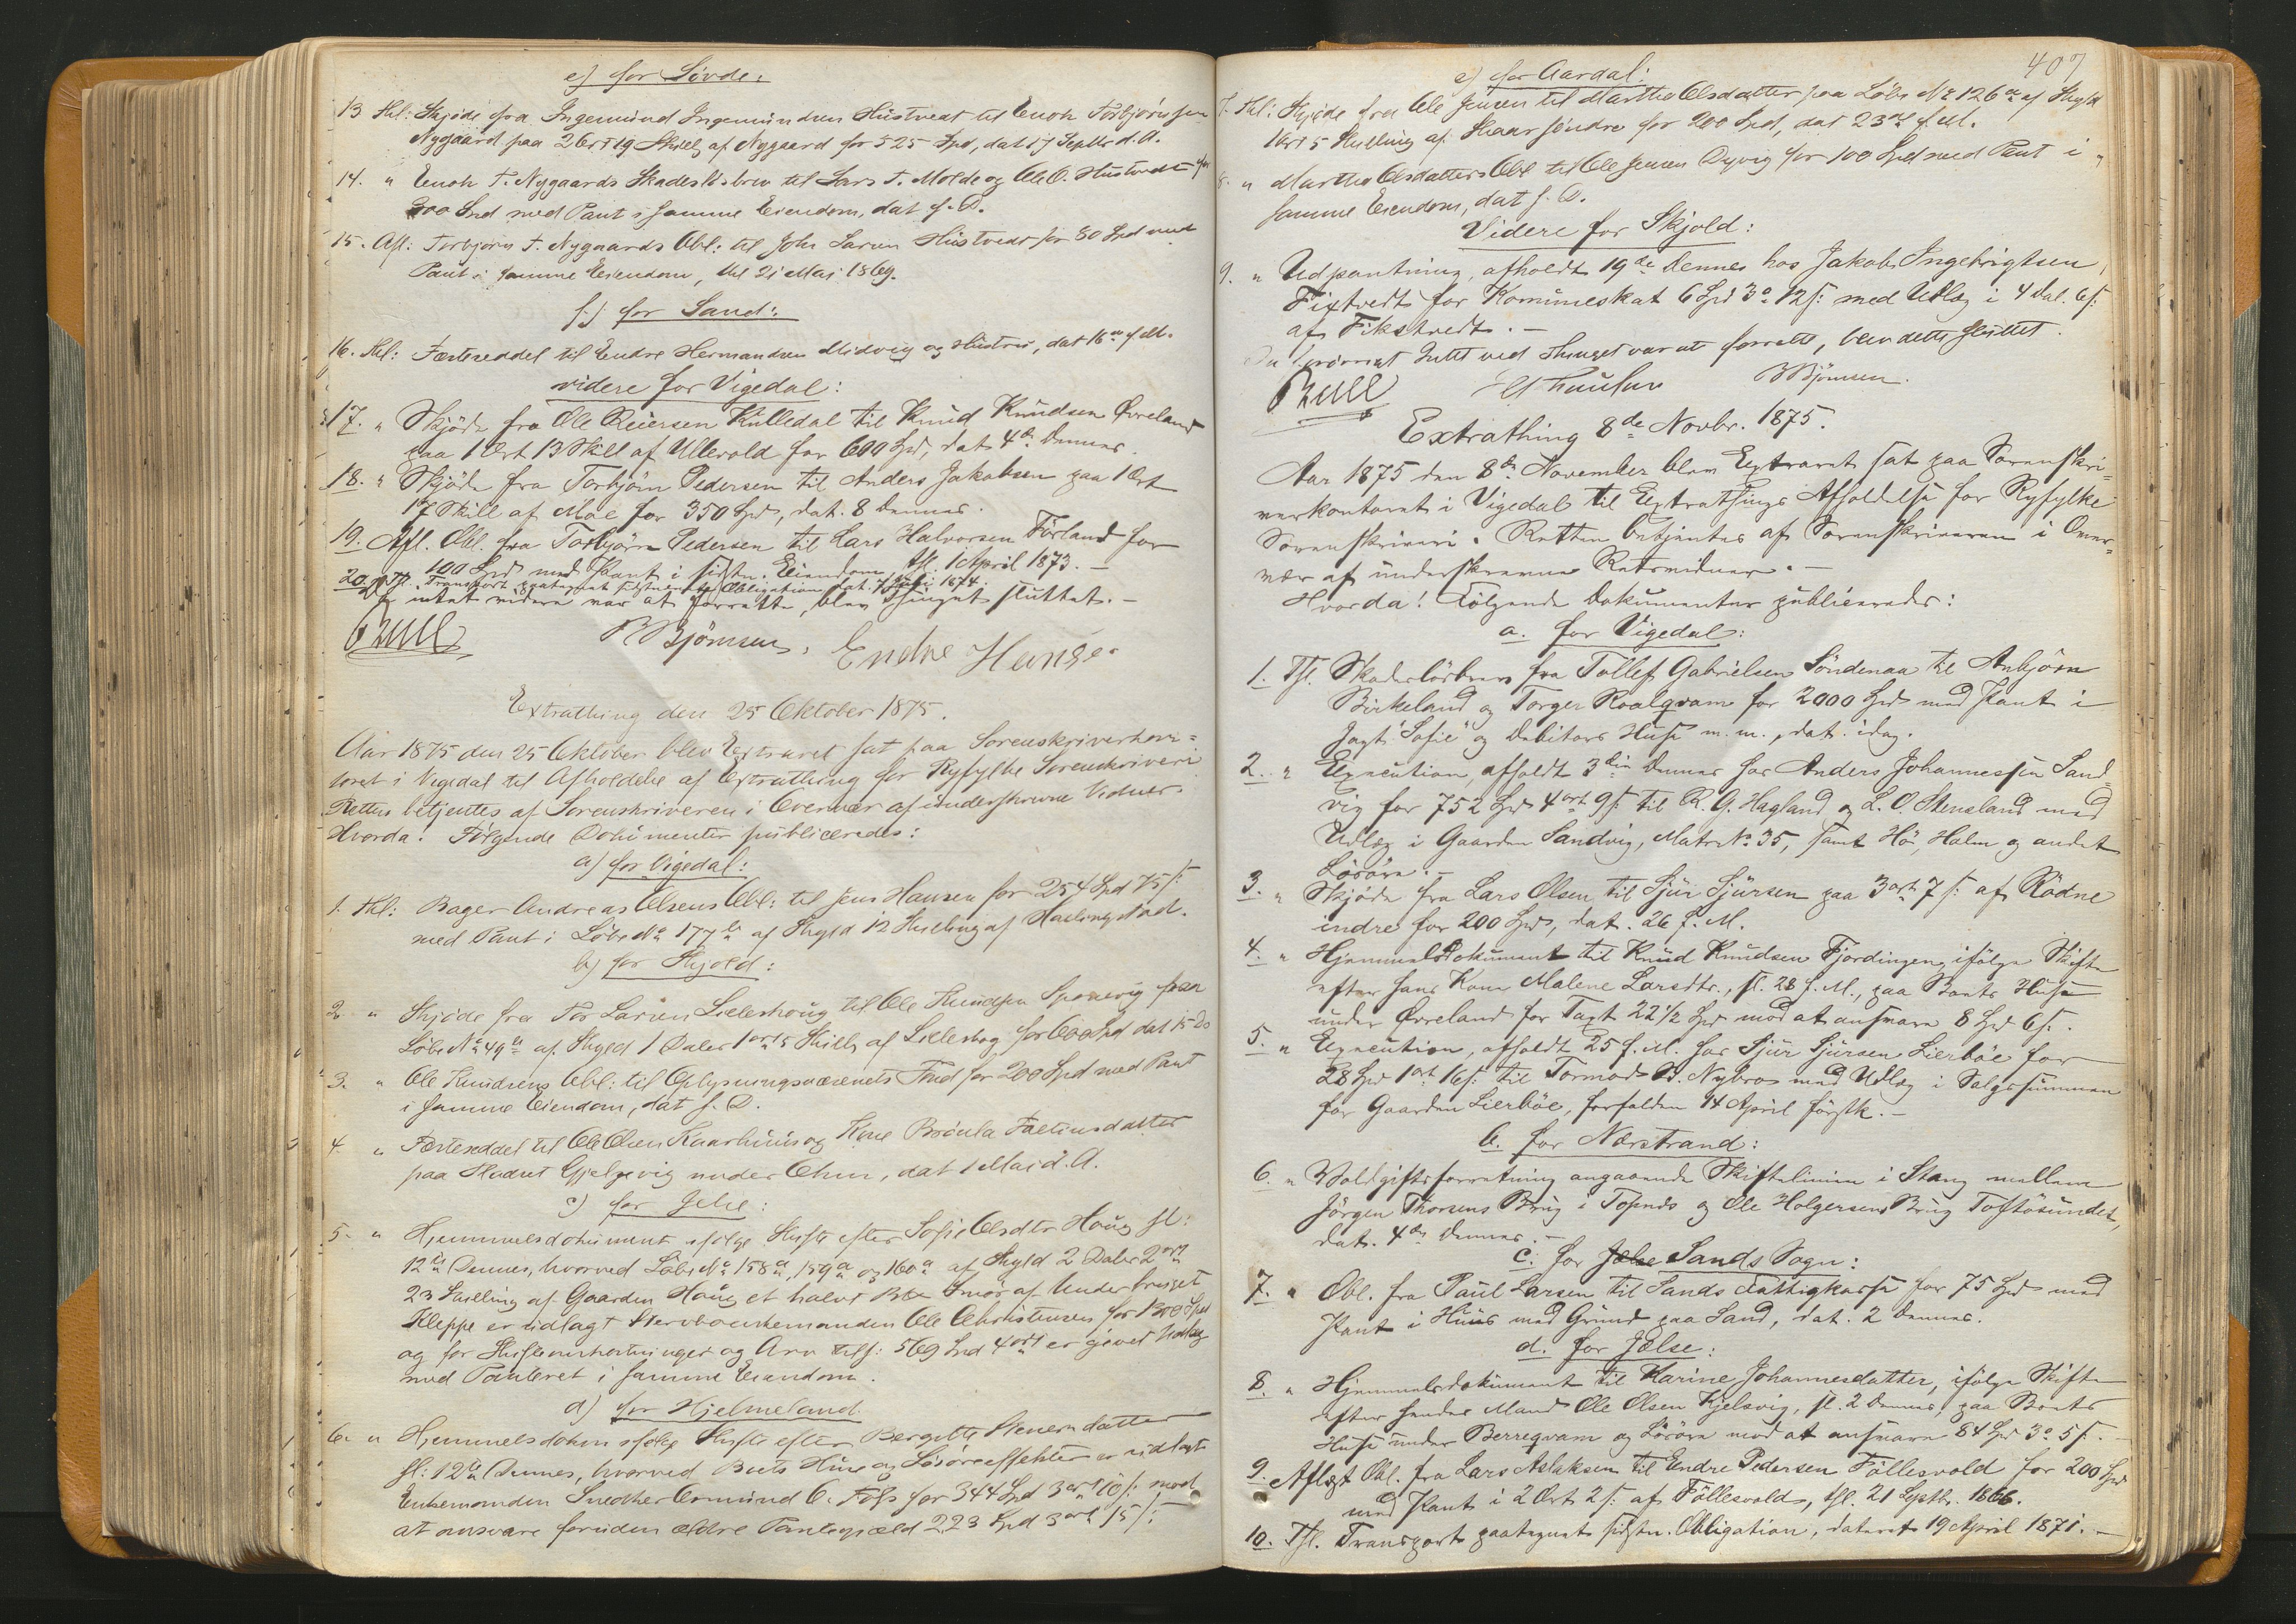 e) for Søvde:
13 Thl: Skjøde fra Ingemund Ingemundsen Hustvedt til Enok Torbjørnsen
Nygaard paa 2 Ort 19 Skill af Nygaard for 525 Spd, dat 17 Septbr d. A.
14. " Enok T. Nygaards Skadesløsbrev til Lars T. Molde og Ole O. Hustvedt for
300 Spd med Pant i samme Eiendom, dat s. D.
15. Afl: Torbjørn T. Nygaards Obl: til John Larsen Hustvedt for 80 Spd med
Pant i samme Eiendom, thl 21 Mai 1869.
f.) for Sand:
16. Thl: Fæsteseddel til Endre Hermandsen Midvig og Hustru, dat 16de f. M.
videre for Vigedal:
17. " Skjøde fra Ole Reiersen Kulledal til Knud Knudsen Øvreland
paa 1 Ort 13 Skill af Ullevold for 600 Spd, dat 4de Dennes.
18. " Skjøde fra Torbjørn Pedersen til Anders Jakobsen paa 1 Ort
17 Skill af Moe for 350 Spd, dat. 8 Dennes.
19. Afl. Obl. fra Torbjørn Pedersen til Lars Halvorsen Førland for
100 Spd med Pant i sidstn. Eiendom, thl. 1 April 1873. —
20. Thl. Transport paategnet sidstnævnte Obligation, dat. 7 Juli 1874.
Da intet videre var at forrette, blev Thinget sluttet. —
Bull
B Bjørnsen, Endre Hauge.
Extrathing den 25 Oktober 1875.
Aar 1875 den 25 Oktober blev Extraret sat paa Sorenskriverkon=
toret i Vigedal til Afholdelse af Extrathing for Ryfylke Sorenskriveri
Retten betjentes af Sorenskriveren i Overvær af underskrevne Vidner.
Hvorda: Følgende Dokumenter publiceredes:
a) for Vigedal:
1. Thl: Bager Andreas Olsens Obl: til Jens Hansen for 254 Spd 75 s:
med Pant i Løbe No 177 b af Skyld 12 Skilling af Hælingstad.
b) for Skjold:
2. " Skjøde fra Tos Larsen Lieleshoug til Ole Knudsen Sponevig paa
Løbe No 49 b af Skyld 1 Daler 1 ort 5 Skill af Lilleshog for 600 Spd dat 15 Ds
3. " Ole Knudsens Obl: til Oplysningsvæsenets Fond for 200 Spd med Pant
i samme Eiendom, dat s. D.
4. " Fæsteseddel til Ole Olsen Kaarhuus og Kone Brønla Faltinsdatter
paa Pladset Gjelgevig under Øhn, dat 1 Mai d. A.
c) for Jelse:
5. " Hjemmelsdokument ifølge Skifte efter Sofie Olsdtr Houg sl:
12te Dennes, hvorved Løbe No 158a, 159a og 160a af Skyld 2 Daler 2 ort
23 Skilling af Gaarden Haug et halvt Smør af Underbruget
Kleppe er udlagt Stervboenkemanden Ole Christensen for 1300 Spd
og for Skifteomkostninger og Arv tils: 569 Spd 4 ort er gjøvet Udlæg
med Panteret i samme Eiendom.
d) for Hjelmeland
6. " Hjemmelsdokum ifølge Skifte efter Bergitte Stenersdatter
sl: 12te Dennes, hvorved Boets Huse og Løsøreeffekter er udlagt
Enkemanden Snedker Osmund O. Fols for 344 Spd 3 ort 10 s: mod
at ansvare foruden ældre Pantegjæld 223 Spd 3 ort 15 s:
407
e) for Aardal:
7. Thl: Skjøde fra Ole Jensen til Martha Olsdatter paa Løbe No 126a af Skyld
1 Ort 5 Skilling af Skaar søndre for 200 Spd, dat 23de f. M.
8. " Martha Olsdatters Obl til Ole Jensen Dyvig for 100 Spd med Pant i
samme Eiendom, dat s. D.
Videre for Skjold:
9. " Udpantning, afholdt 19de Dennes hos Jakob Ingebrigtsen
Fixtvedt for Komuneskat 6 Spd 3 o 12 s: med Udlæg i 4 Dal. 6 s:
af Fikstvedt. —
Da forøvrigt Intet ved Thinget var at forrette, blev dette sluttet.
Bull H Poulsen B Bjørnsen.
Extrathing 8de Novbr. 1875.
Aar 1875 den 8de November blev Extraret sat paa Sorenskri-
verkontoret i Vigedal til Extrathings Afholdelse for Ryfylke
Sorenskriveri. Retten betjentes af Sorenskriveren i Over-
vær af underskrevne Retsvidner. —
Hvorda! Følgende Dokumenter publiceredes:
a. for Vigedal:
1. Thl. Skadesløsbrev fra Tollef Gabrielsen Søndenaa til Anbjørn
Birkeland og Torger Roalqvam for 2000 Spd med Pant i
Jagt "Sofie" og Debitors Huse m. m., dat. idag.
2. " Execution, afholdt 3die Dennes hos Anders Johannessen Sand-
vig for 752 Spd 4 ort 9 s: til R. G. Hagland og L. O. Stensland med
Udlæg i Gaarden Sandvig, Matr. No 35, samt Hø, Halm og andet
Løsøre. —
3. " Skjøde fra Lars Olsen til Sjur Sjursen paa 3 ort 7 s: af Rødne
indre for 200 Spd, dat. 26 f. M.
4. " Hjemmelsdokument til Knud Knudsen Fjordingen, ifølge Skifte
efter hans Kone Malene Larsdtr., sl. 28 f. M., paa Boets Huse
under Øvreland for Taxt 22 1/2 Spd mod at ansvare 8 Spd 6 s.
5. " Execution, afholdt 25 f. M. hos Sjur Sjursen Lierbøe for
28 Spd 1 ort 16 s: til Tormod B. Nybro med Udlæg i Salgssummen
for Gaarden Lierbøe, forfalden 14 April førstk. —
b. for Nærstrand:
6. " Voldgiftsforretning angaaende Skiftelinien i Stang mellem
Jørgen Thorsens Brug i Tofends og Ole Holgersens Brug Toftøsundet,
dat. 4de Dennes. —
c. for Jelse Sands Sogn:
7. " Obl. fra Paul Larsen til Sands Fattigkasse for 75 Spd med
Pant i Huus med Grund paa Sand, dat. 2 Dennes.
d. for Jelse:
8. " Hjemmelsdokument til Karine Johannesdatter, ifølge Skifte
efter hendes Mand Ole Olsen Kjelsvig, sl. 2 Dennes, paa Boets
Huse under Berreqvam og Løsøre mod at ansvare 84 Spd 3 o 5 s. —
9. Aflæst Obl. fra Lars Aslaksen til Endre Pedersen Føllesvold for 200 Spd
med Pant i 2 Ort 2 s: af Føllesvold, thl. 21 Septbr. 1866.
10. Thl. Transport paategnet sidstn. Obligation, dateret 19 April 1871. —